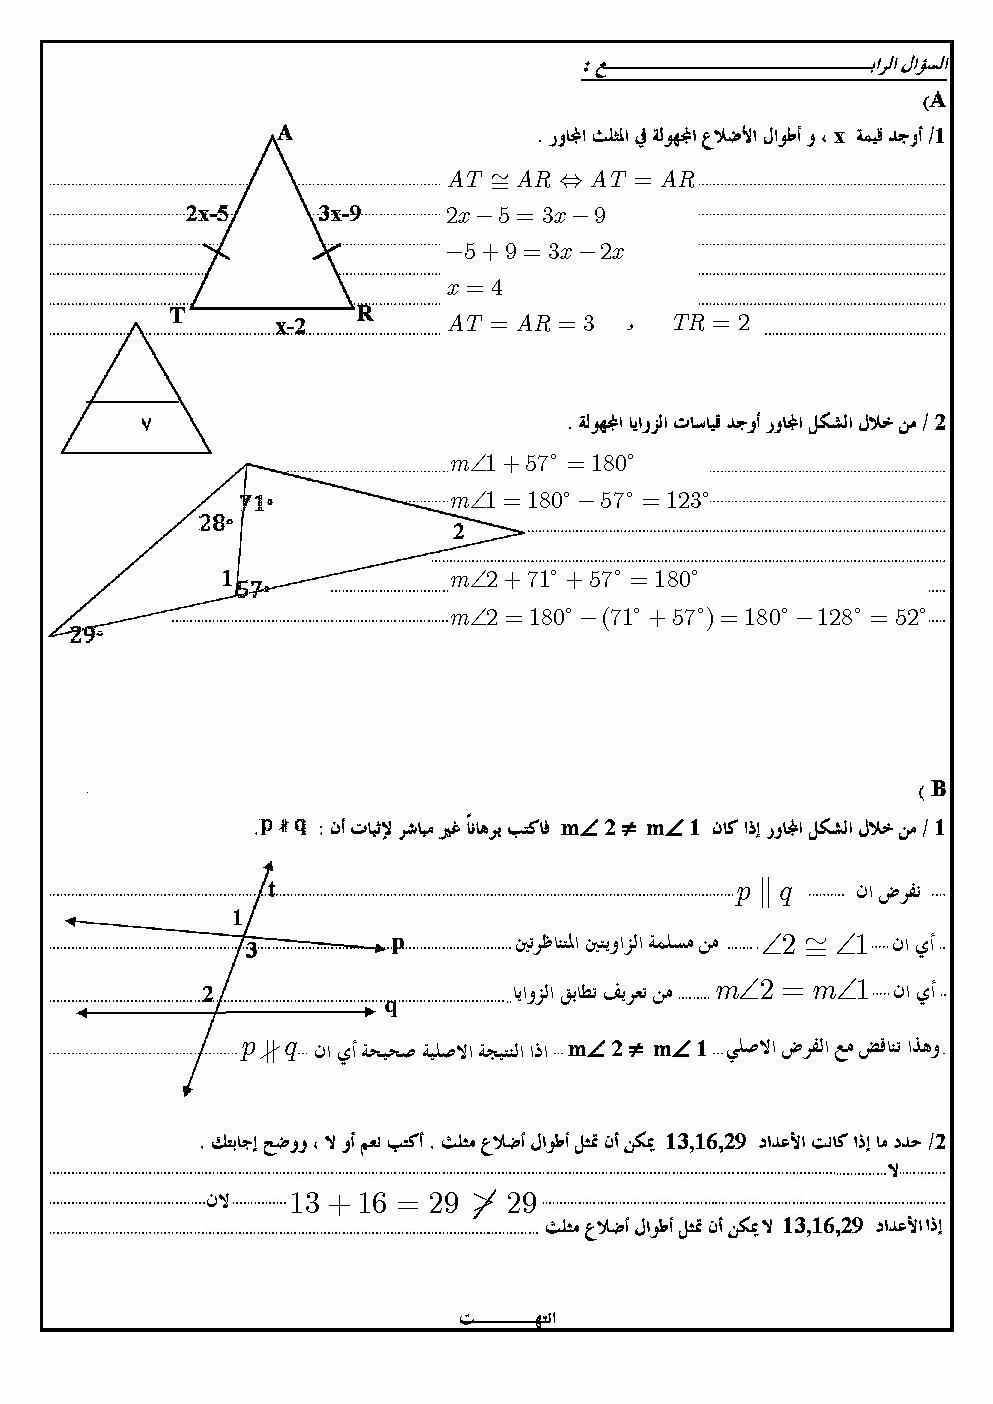 السؤال الرابـــــــــع :
A)
1/ أوجد قيمة x ، و أطوال الأضلاع المجهولة في المثلث المجاور .
A
AT ≅ AR ⇔ AT = AR
2x-5 3x-9
2x − 5 = 3x − 9
−5 + 9 = 3x − 2x
x = 4
T R
x-2
AT = AR = 3 ، TR = 2
٧
2 / من خلال الشكل المجاور أوجد قياسات الزوايا المجهولة .
m∠1 + 57° = 180°
m∠1 = 180° − 57° = 123°
71°
28°
2
1
57°
m∠2 + 71° + 57° = 180°
m∠2 = 180° − (71° + 57°) = 180° − 128° = 52°
29°
B )
1 / من خلال الشكل المجاور إذا كان m∠ 2 ≠ m∠ 1 فاكتب برهاناً غير مباشر لإثبات أن : p ∦ q.
t
نفرض ان p ∥ q
1
3
p
أي ان ∠2 ≅ ∠1 من مسلمة الزاويتين المتناظرتين
2
q
أي ان m∠2 = m∠1 من تعريف تطابق الزوايا
وهذا تناقض مع الفرض الاصلي m∠ 2 ≠ m∠ 1 اذا النتيجة الاصلية صحيحة أي ان p ∦ q
2/ حدد ما إذا كانت الأعداد 13,16,29 يمكن أن تمثل أطوال أضلاع مثلث . أكتب نعم أو لا ، ووضح إجابتك .
لا
لان 13 + 16 = 29 ≯ 29
إذا الأعداد 13,16,29 لا يمكن أن تمثل أطوال أضلاع مثلث
انتهـــــــت